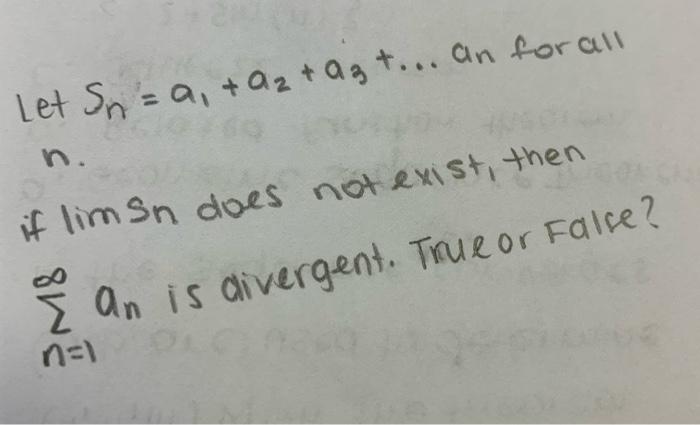 Let Sn = a1 + a2 + a3 +... an for all
n.
if lim Sn does not exist, then
∞
Σ an is divergent. True or False?
n=1